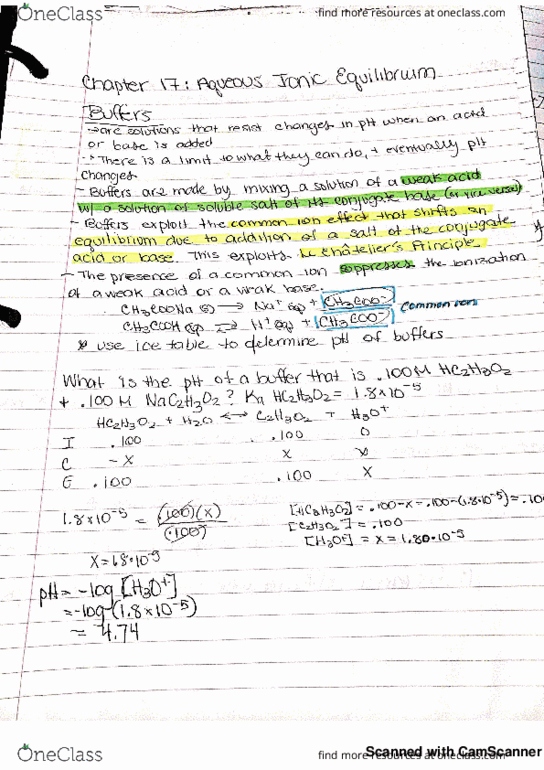 OneClass
find more resources at oneclass.com
Chapter 17: Aqueous Ionic Equilibrium
Buffers
→ are solutions that resist changes in pH when an acid
or base is added
→ There is a limit to what they can do, + eventually pH
changes
- Buffers are made by mixing a solution of a weak acid
w/ a solution of soluble salt of its conjugate base (or vice versa)
- Buffers exploit the common ion effect that shifts an
equilibrium due to addition of a salt of the conjugate
acid or base. This exploits Le Châtelier's Principle
- The presence of a common ion suppresses the ionization
of a weak acid or a weak base.
CH3COONa (s) → Na+ (aq) + CH3COO- common ions
CH3COOH (aq) ⇌ H+ (aq) + CH3COO-
* use ice table to determine pH of buffers
What is the pH of a buffer that is .100 M HC2H3O2
+ .100 M NaC2H3O2? Ka HC2H3O2 = 1.8×10-5
HC2H3O2 + H2O ⇌ C2H3O2 + H3O+
I .100 .100 0
C -x x x
E .100 .100 x
1.8×10-5 = (.100)(x) / (.100)
[HC2H3O2] = .100-x = .100-(1.8×10-5) = .10
[C2H3O2-] = .100
[H3O+] = x = 1.80·10-5
x = 1.8·10-5
pH = -log [H3O+]
= -log (1.8×10-5)
= 4.74
Scanned with CamScanner
OneClass
find more resources at oneclass.com